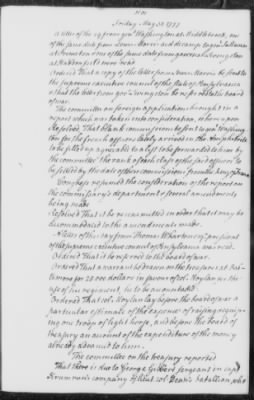 Friday, May 30, 1777
A letter of the 29 from gen Washington at Middlebrook, one
of the same date from
at Princeton & one of the same date from governor Livingston
at Haddonfield were read.
Ordered That a copy of the letter from be sent to
the supreme executive council of the state of Pensylvania
& that the letter from gov Livingston be referred to the board
of war.
The committee on foreign application brought in a
report which was taken into consideration, whereupon
Resolved, That blank commissions be sent to gen Washing
ton for the french officers lately arrived in the
to be filled up agreeable to a list to be forwarded to him by
the committee the rank of each of the said officers to
be settled by the date of their commission from the
Congress resumed the consideration of the report on
the commissary's department & several amendments
being made
Resolved That it be recommitted in order that it may be
accommodated to the amendments made.
A letter of this day from Thomas Wharton esq president
of the supreme executive council of Pensylvania was read.
Ordered That it be referred to the board of war.
Ordered That a warrant be drawn on the treasurer
for 20.000 dollars in favour of col. Moylan for the
use of his regiment, he to be accountable
Ordered That col. Moylan lay before the board of war a
particular estimate of the expence of raising & equip
ing one troop of light horse, and before the board of
treasury an account of the expenditure of the money
already advanced to him.
The committee on the treasury reported
That there is due to George Gilbert serjeant in capt
company of lieut col. battalion, who